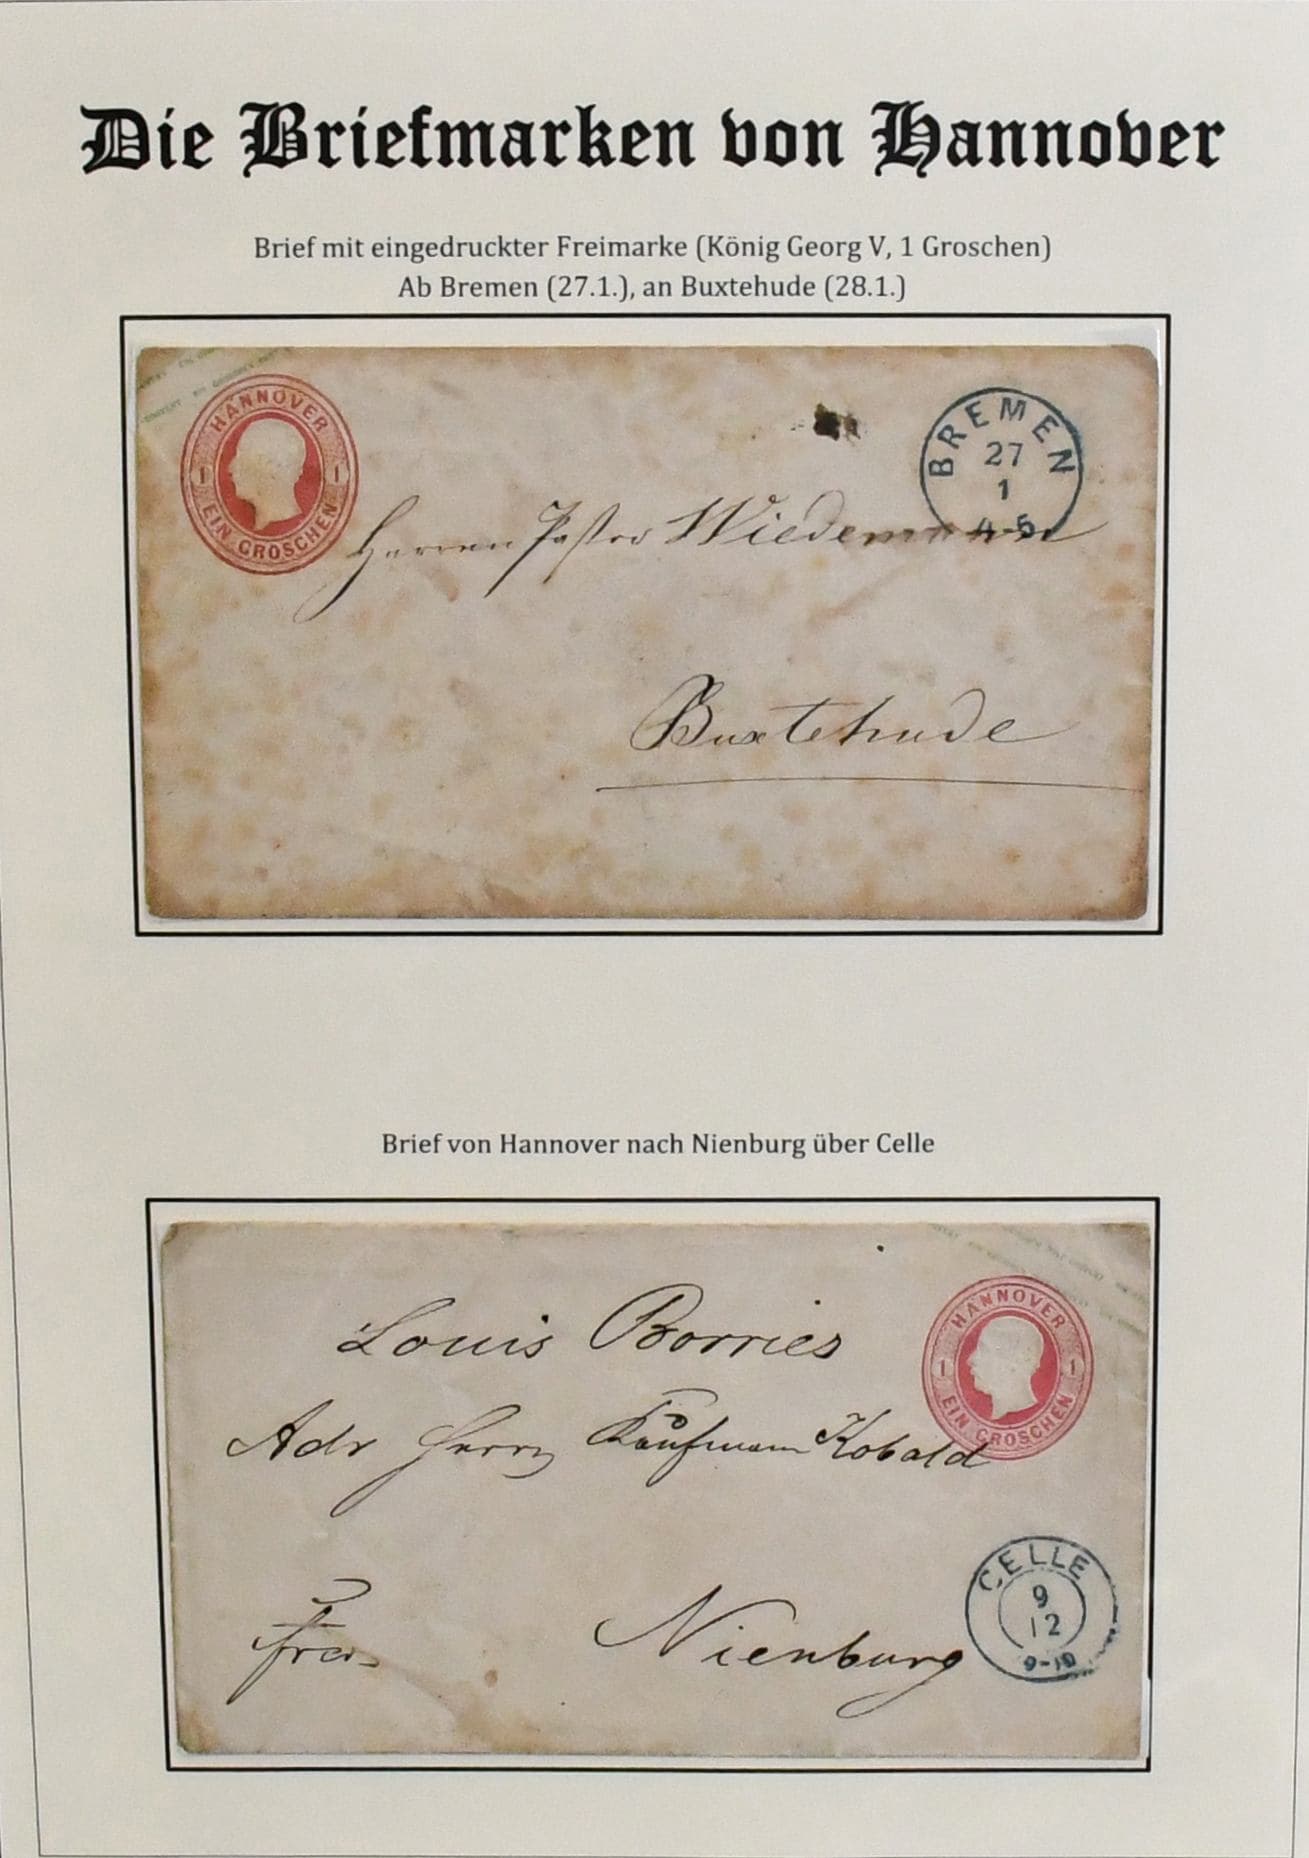 Die Briefmarken von Hannover
Brief mit eingedruckter Freimarke (König Georg V, 1 Groschen)
Ab Bremen (27.1.), an Buxtehude (28.1.)
HANNOVER
1 1
EIN GROSCHEN
BREMEN
27
1
4-5
Herren Pastor Wiedemann
Buxtehude
Brief von Hannover nach Nienburg über Celle
Louis Borries
HANNOVER
1 1
EIN GROSCHEN
Adr Herrn Kaufmann Kobald
CELLE
9
12
9-10
Nienburg